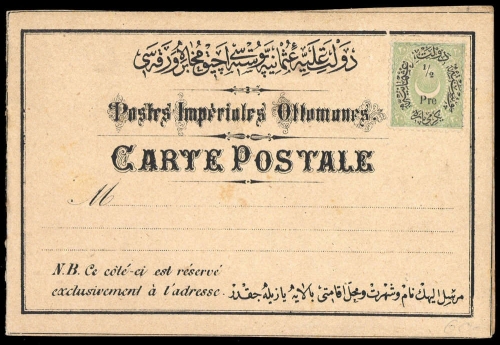 دولت علیه عثمانیه پوسته سی ایچون مخابره ورقه سی
Postes Impériales Ottomanes.
CARTE POSTALE
M
N.B. Ce côté-ci est réservé
exclusivement à l'adresse.
مرسل الیهك نام و شهرت و محل اقامتی بالایه یازیله جقدر
دولت
1/2
Pre